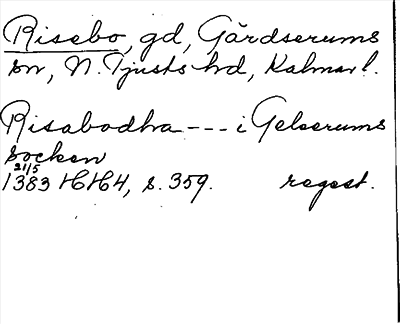 Risebo, gd, Gärdserums
sn, N. Tjusts hd, Kalmar l.
Risabodha --- i Gelserums
socken
21/5
1383 HH4, s. 359. regest.